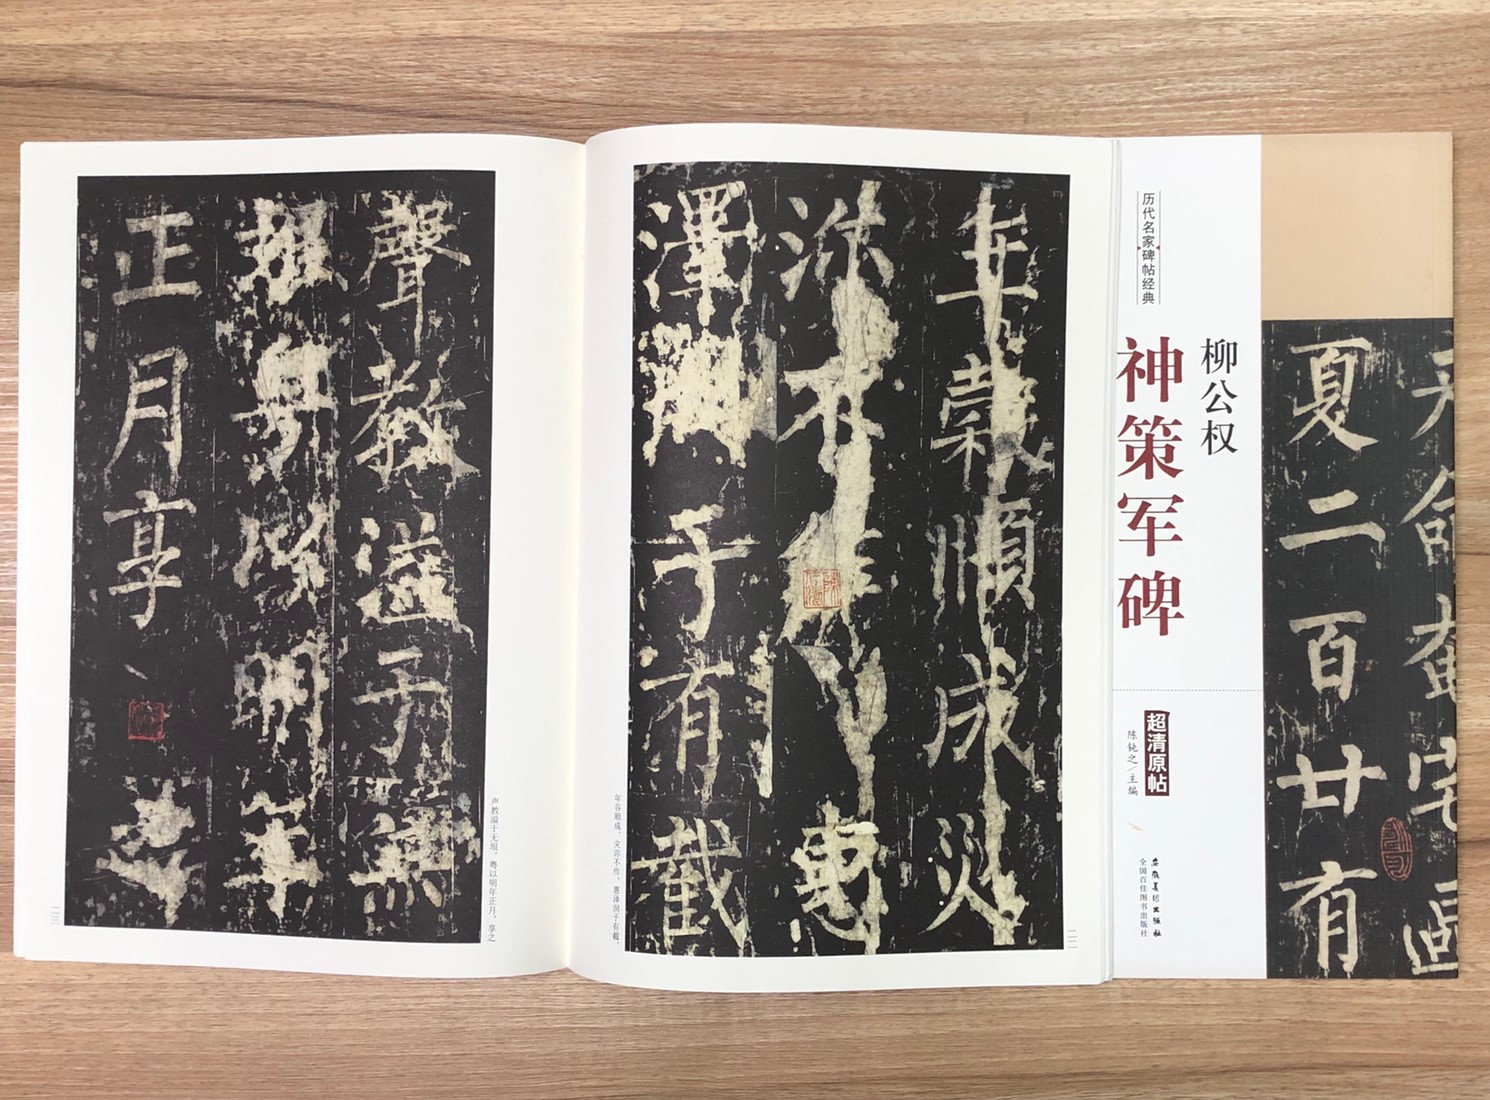 历代名家碑帖经典
柳公权
神策军碑
超清原帖
陈钝之/主编
安徽美术出版社
全国百佳图书出版社
天命奄宅區
夏二百廿有
年穀順成災
沴不作惠
澤潤于有截
年谷顺成，灾沴不作，惠泽润于有截，
二二
聲教溢于無
垠粤以明年
正月享之
声教溢于无垠。粤以明年正月，享之
二三